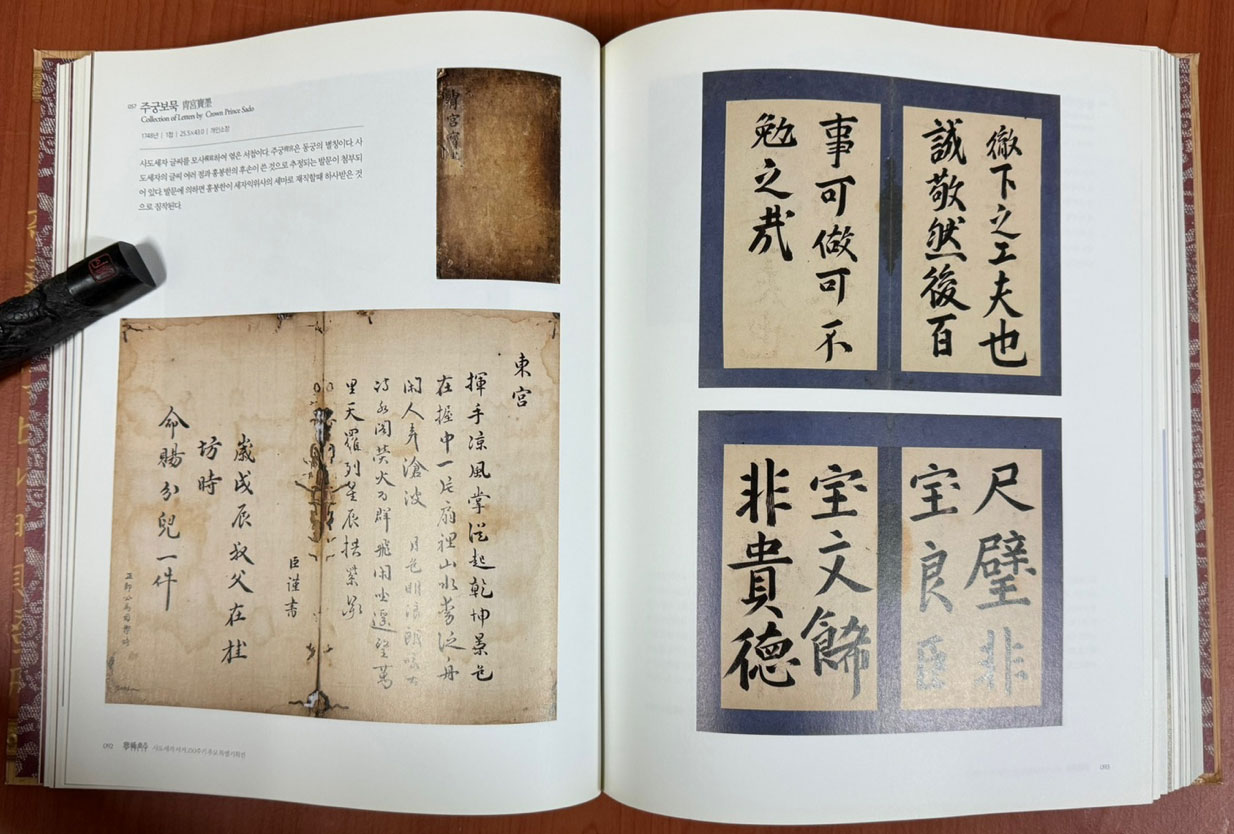 057 주궁보묵 胄宮寶墨
Collection of Letters by Crown Prince Sado
1748년 | 1첩 | 25.5×43.0 | 개인소장
사도세자 글씨를 모사模寫하여 엮은 서첩이다. 주궁胄宮은 동궁의 별칭이다. 사
도세자의 글씨 여러 점과 홍봉한의 후손이 쓴 것으로 추정되는 발문이 첨부되
어 있다. 발문에 의하면 홍봉한이 세자익위사의 세마로 재직할 때 하사받은 것
으로 짐작된다.
胄宮寶墨
東宮
揮手凉風掌從起乾坤景色
在握中一片扇裡山水秀泛舟
閑人弄滄波 月色明
水閣熒火乃群飛閑坐遙望萬
里天羅列星辰拱紫
臣謹書
歲戊辰叔父在桂
坊時
命賜分兒一件
사도세자 서거 250주기 추모 특별기획전
徹下之工夫也
誠敬然後百
事可做可不
勉之哉
尺璧非
宝良臣
宝文餙
非貴德